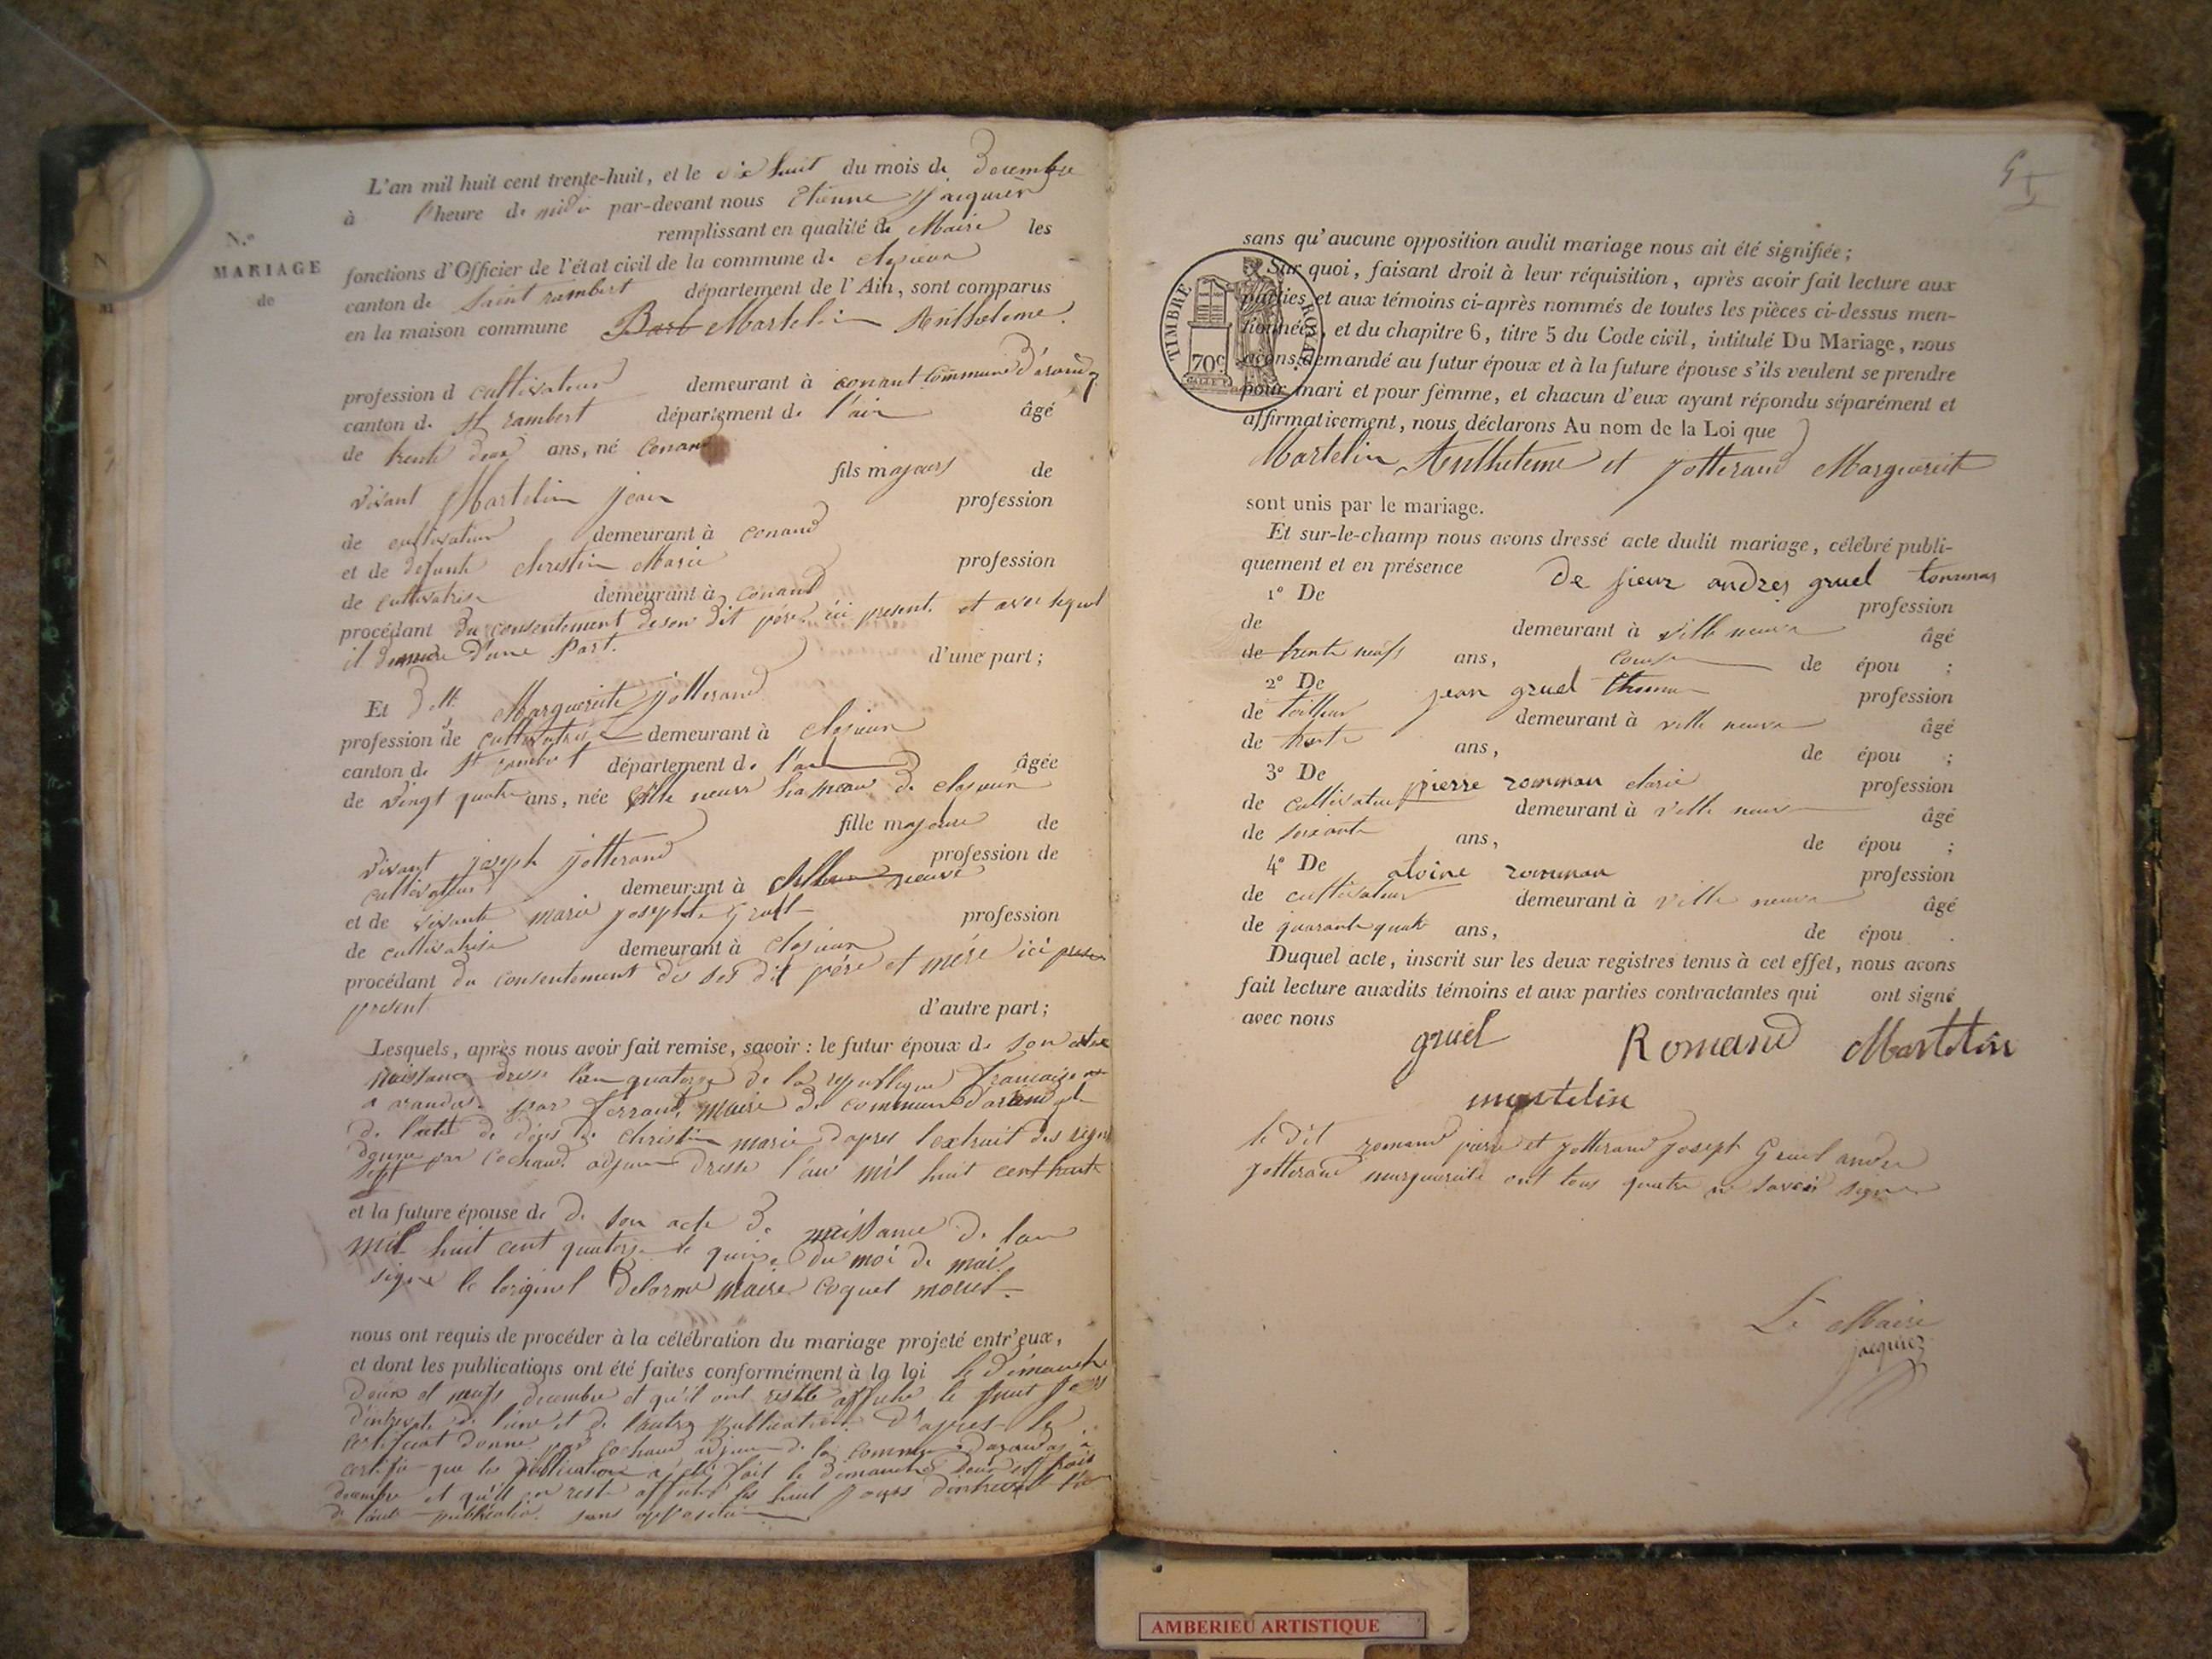 L'an mil huit cent trente-huit, et le dix huit du mois de Decembre
à l'heure de midi par-devant nous Etienne Jacquier
remplissant en qualité de Maire les
N.º
MARIAGE
de
fonctions d'Officier de l'état civil de la commune de cleyzieux
canton de Saint rambert département de l'Ain, sont comparus
en la maison commune Martelin Antheleme
profession d cultivateur demeurant à conant commune d'arandas
canton de St rambert département de l'ain âgé
de trente deux ans, né Conand
fils majeurs de
vivant Martelin jean profession
de cultivateur demeurant à conand
et de defunte christin Marie profession
de cultivatrise demeurant à conand
procédant du consentement de son dit père ici present. et avec lequel
il demeure d'une Part. d'une part ;
Et Marguerite jotterand
profession de cultivatrise demeurant à cleyzieux
canton de St rambert département de l'ain âgée
de vingt quatre ans, née ville neuve hameau de cleyzieux
fille majeure de
vivant joseph jotterand profession de
cultivateur demeurant à neuve
et de vivante marie josephte gruel profession
de cultivatrise demeurant à cleyzieux
procédant du consentement de ses dit père et mère ici
present d'autre part ;
Lesquels, après nous avoir fait remise, savoir : le futur époux de son acte
naissance dresse l'an quatorze de la republique francaise
a arandas par ferrand, maire de commune d'arandas
de l'acte de déces de christin marie d'apres l'extrait des
par cochaud adjoint dresse l'an mil huit cent trente
et la future épouse de de son acte de naissance de l'an
mil huit cent quatorze le quinze du moi de mai
signe le loriginel Delorme maire coquet morel
nous ont requis de procéder à la célébration du mariage projeté entr'eux,
et dont les publications ont été faites conformément à la loi le dimanche
deux et neufs decembre et qu'il ont resté affiche le huit jours
d'intrevale de l'une et de l'autre publication. D'apres le
certificat donne par cochaud adjoint de la commune d'arandas
certifie que les publication a été fait le dimanche deux et
decembre et qu'il on resté affiche les huit jours d'intrevale
de l'autre publication. sans opposition
sans qu'aucune opposition audit mariage nous ait été signifiée ;
Sur quoi, faisant droit à leur réquisition, après avoir fait lecture aux
parties et aux témoins ci-après nommés de toutes les pièces ci-dessus men-
tionnées, et du chapitre 6, titre 5 du Code civil, intitulé Du Mariage, nous
avons demandé au futur époux et à la future épouse s'ils veulent se prendre
pour mari et pour femme, et chacun d'eux ayant répondu séparément et
affirmativement, nous déclarons Au nom de la Loi que
TIMBRE ROYAL
70c
Martelin Antheleme et jotterand Marguerite
sont unis par le mariage.
Et sur-le-champ nous avons dressé acte dudit mariage, célébré publi-
quement et en présence de sieur andrez gruel
1º De profession
de demeurant à ville neuve âgé
de trente neufs ans, de épou ;
2º De jean gruel profession
de tailleur demeurant à ville neuve âgé
de trente ans, de épou ;
3º De pierre romman profession
de cultivateur demeurant à ville neuve âgé
de soixante ans, de épou ;
4º De atoine romman profession
de cultivateur demeurant à ville neuve âgé
de quarante quatre ans, de épou .
Duquel acte, inscrit sur les deux registres tenus à cet effet, nous avons
fait lecture auxdits témoins et aux parties contractantes qui ont signé
avec nous
gruel Romand Martelin
martelin
le dit romand piere et jotterand joseph Gruel andre
jotterand marguerite ont tous quatre ne savoir signer
Le Maire
jacquiez
AMBERIEU ARTISTIQUE